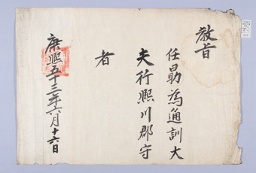 教旨
任 為通訓大
夫行熙川郡守
者
康熙五十三年六月十六日